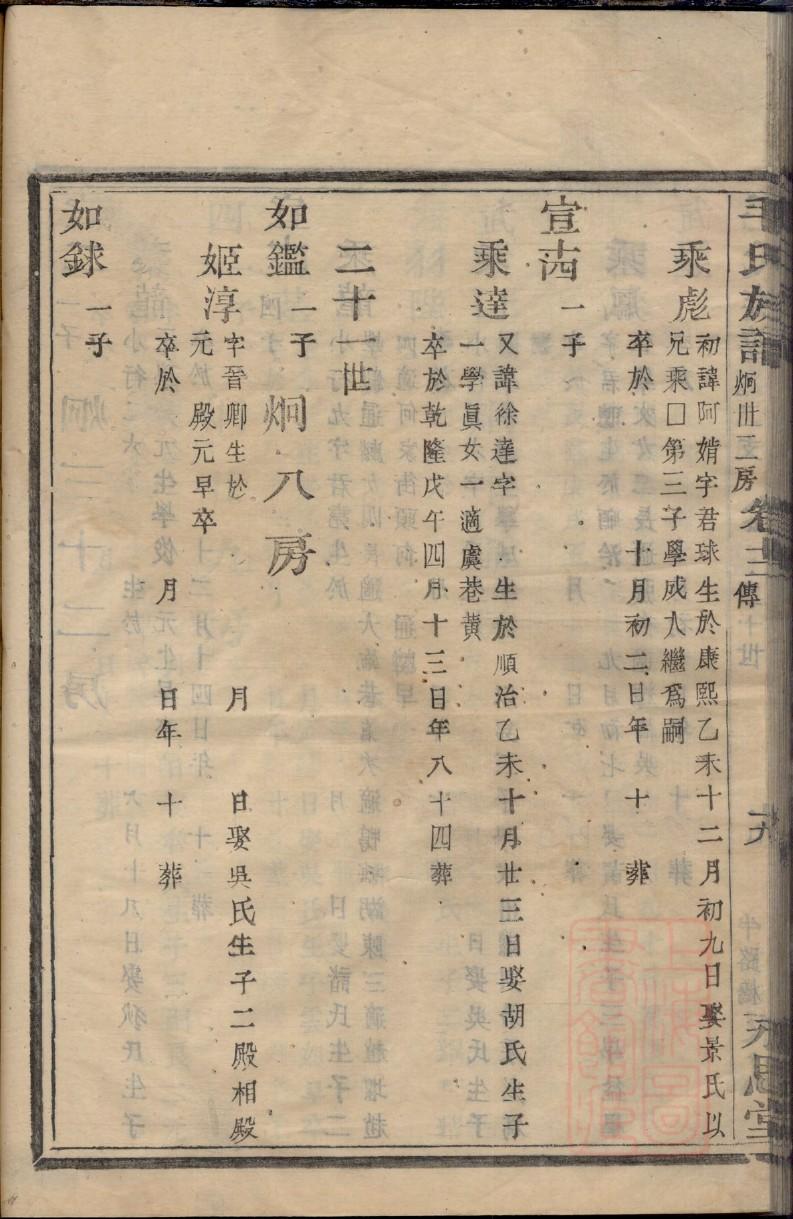 毛氏族譜 炯卅二房 卷十三 傳 十九 永思堂
乘彪 初諱阿婧字君球生於康熙乙未十二月初九日娶景氏以
兄乘囗第三子學成入繼爲嗣
卒於 十月初二日年 十 葬
宣茜 一子
乘達 又諱徐達字 生於順治乙未十月廿三日娶胡氏生子
一學眞女一適虞巷黃
卒於乾隆戊午四月十三日年八十四葬
二十一世
如鑑 一子 炯八房
姬淳 字晉卿生於 月 日娶吳氏生子二殿相殿
元 殿元早卒
卒於 月 日年 十 葬
如銶 一子